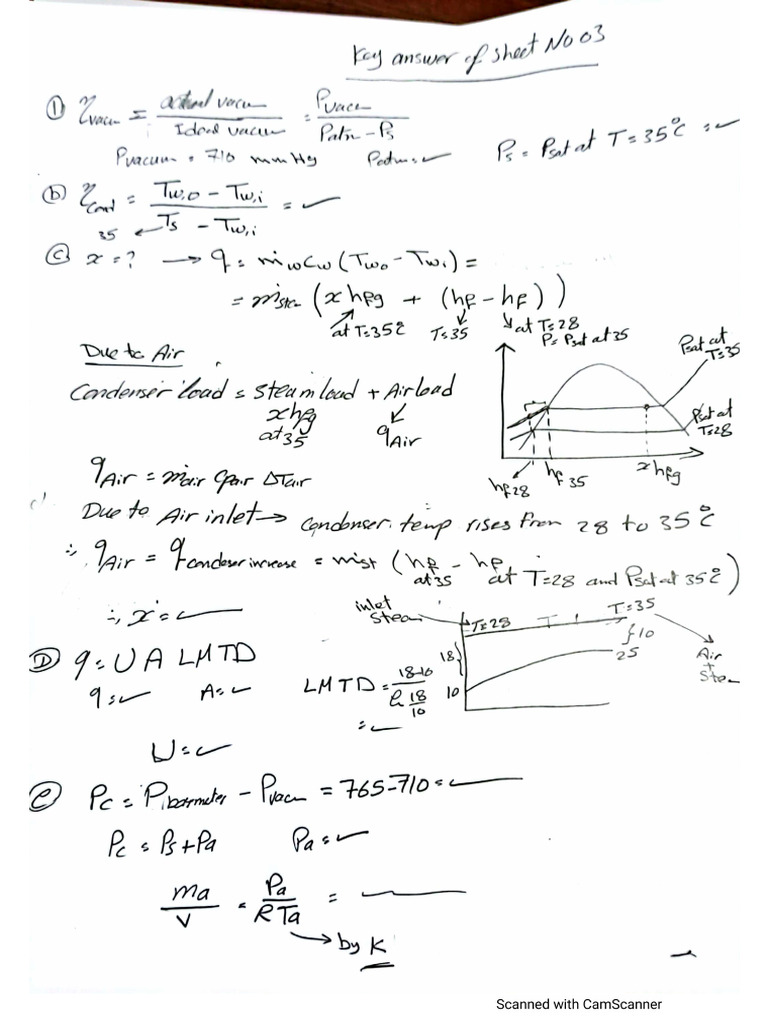 Key answer of sheet No 03
① ηvacu = actual vacu / Ideal vacu = Pvacu / Patm - Ps
Pvacuum = 710 mmHg Patm = ✓ Ps = Psat at T = 35°C = ✓
ⓑ ηcond = Tw,o - Tw,i / Ts - Tw,i = ✓
35 ← Ts
ⓒ x = ? → q = ṁw cw (Two - Twi) =
= ṁste (x hfg + (hf - hf))
at T=35°C T=35 at T=28
P = Psat at 35
Due to Air
Condenser load = steam load + Air load
x hfg
at 35 qAir
Psat at T=35
Psat at T=28
hf 28 hf 35 x hfg
qAir = ṁair cpair ΔTair
Due to Air inlet → condenser temp rises from 28 to 35°C
∴ qAir = q condeser increase = ṁst (hf at 35 - hf at T=28 and Psat at 35°C)
∴ x = ✓
inlet steam T=28 T=35
18 10 25 10
Air + Ste
Ⓓ q = U A LMTD
q = ✓ A = ✓ LMTD = 18-10 / ln 18/10
= ✓
U = ✓
ⓔ Pc = Pbarometer - Pvacu = 765-710 =
Pc = Ps + Pa Pa = ✓
ma / V = Pa / R Ta =
→ by K
Scanned with CamScanner